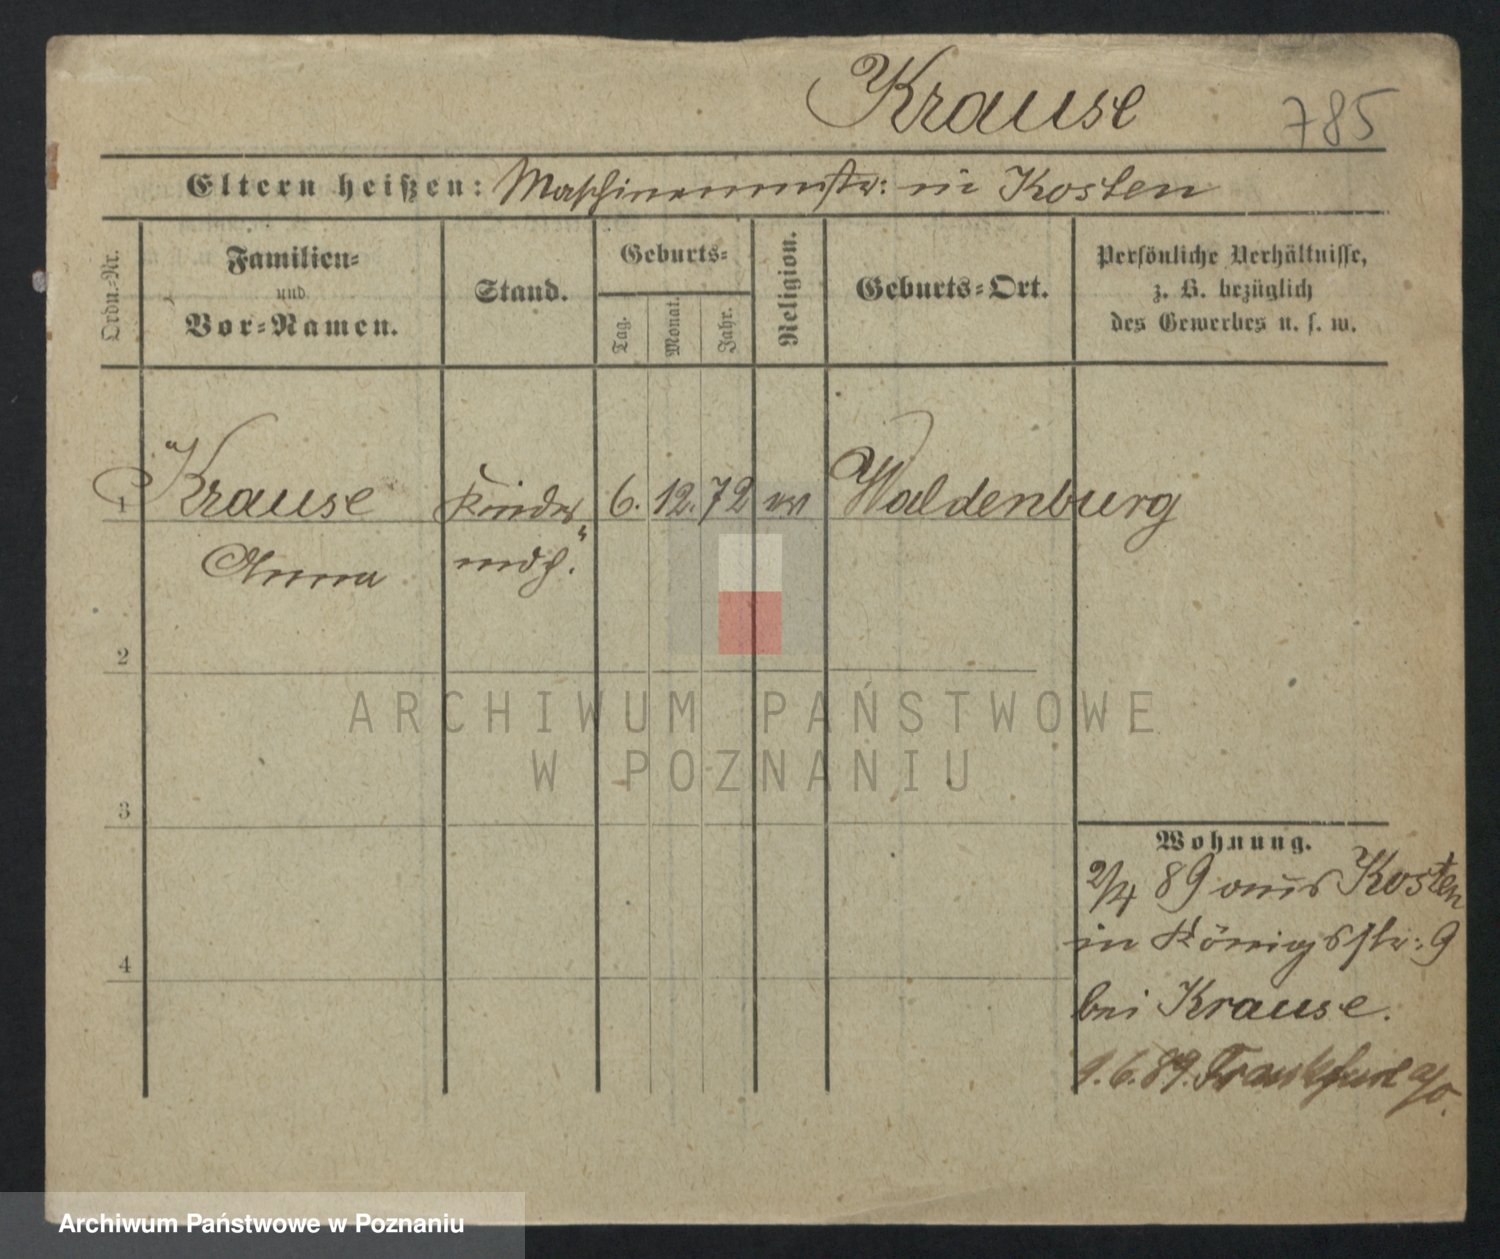 Krause 785
Eltern heißen: Maschinenmstr: in Kosten
Ordn.-Nr.
Familien-
und
Vor-Namen.
Stand.
Geburts-
Tag.
Monat.
Jahr.
Religion.
Geburts-Ort.
Persönliche Verhältnisse,
z. B. bezüglich
des Gewerbes u. s. w.
1 Krause Kinder 6. 12. 72 ev Waldenburg
Anna mdch.
2
3
4
Wohnung.
2/4 89 aus Kosten
in Königsstr: 9
bei Krause.
1.6.89. Frankfurt a/O.
ARCHIWUM PAŃSTWOWE
W POZNANIU
Archiwum Państwowe w Poznaniu